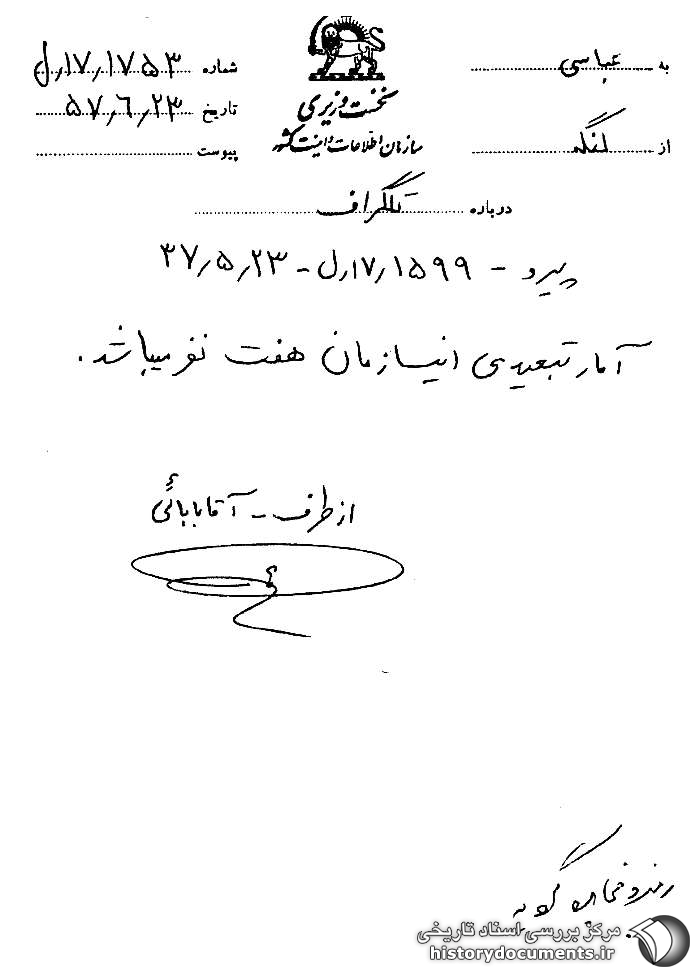 به عباسی
از لنگه
نخست وزیری
سازمان اطلاعات و امنیت کشور
شماره ۱۷٫۱۷۵۳٫ل
تاریخ ۵۷٫۶٫۲۳
پیوست
دوباره تلگراف
پیرو - ۱۷٫۱۵۹۹٫ل - ۳۷٫۵٫۲۳
آمار تبعیدی اینسازمان هفت نفر میباشد.
از طرف - آقابابائی
مرکز بررسی اسناد تاریخی
historydocuments.ir